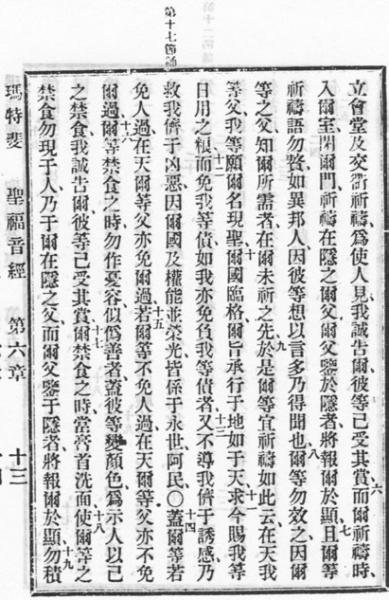 立會堂及交衢祈禱、爲使人見、我誠告爾、彼等已受其賞、而爾禱時、
六
入爾室、閉爾門、祈禱在隱之爾父、爾父鑒於隱者、將報爾於顯、且爾等
七
祈禱語勿贅、如異邦人、因彼等想以言多乃得聞也、爾等勿效之、因爾
八
等之父、知爾所需者、在爾未祈之先、於是爾等宜祈禱如此云、在天我
九
等父、我等願爾名現聖、爾國臨格、爾旨承行于地、如于天、求今賜我等
十 十一
日用之糧、而免我等債、如我亦免負我等債者、又不導我儕于誘惑、乃
十二 十三
救我儕于凶惡、因爾國及權能並榮光、皆係于永世、阿民、○蓋爾等若
十四
免人過、在天爾等父亦免爾過、若爾等不免人過、在天爾等父亦不免
十五
爾過、爾等禁食之時、勿作憂容、似僞善者、蓋彼等變顏色、爲示人以己
十六
之禁食、我誠告爾、彼等已受其賞、爾禁食之時、當膏首洗面、使爾等之
十七 十八
禁食、勿現于人、乃于爾在隱之父、而爾父鑒于隱者、將報爾於顯、勿積
十九
瑪特斐 聖福音經 第六章 十三